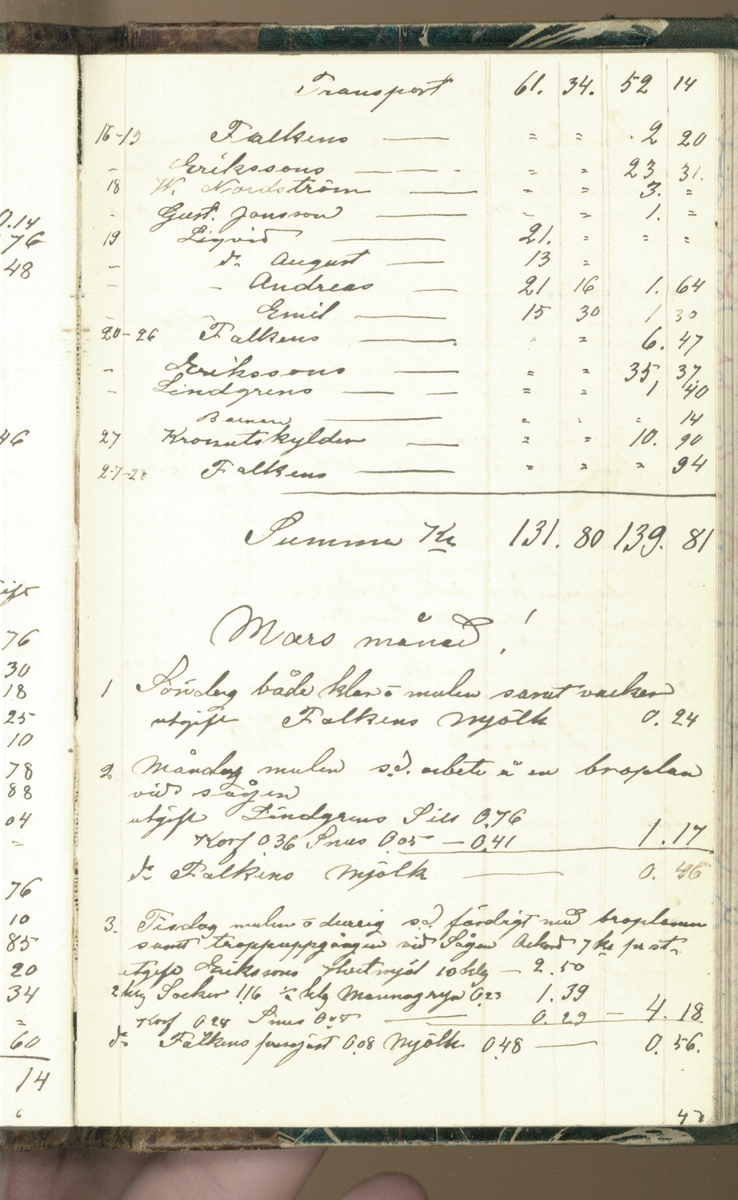 Transport 61. 34. 52 14
16-19 Falkens — = = 2 20
" Erikssons — = = 23 31.
18 W. Nordström — " = 3. =
" Gust. Jansson — = = 1. =
19 Liqvid — 21. = = =
" do August — 13 =
" " Andreas — 21 16 1. 64
" Emil — 15 30 1 30
20-26 Falkens — = 6. 47
" Erikssons — = = 35 37.
" Lindgrens — = = 1 40
— " " " 14
27 Kronutskylder — = = 10. 90
27-28 Falkens — = = = 94
Summa Kr 131. 80 139. 81
Mars månad!
1 Söndag både klar o mulen samt vacker
utgift Falkens Mjölk 0.24
2 Måndag mulen s.d. arbete å en broplan
vid sågen
utgift Lindgrens Sill 0,76
Korf 0 36 Snus 0.05 — 0.41 1.17
do Falkens Mjölk — 0. 46
3. Tisdag mulen o s.d. färdigt med broplanen
samt trappuppgången vid Sågen Ackord 7 kr pr st.
utgift Erikssons Hvetmjöl 10 klg — 2.50
2 klg Socker 1.16 ½ klg Mannagryn 0.23 1.39
Korf 0.24 Snus 0.05 — 0.29 — 4.18
do Falkens 0.08 Mjölk 0.48 — 0.56.
0.14
76
48
46
76
30
18
25
10
78
88
04
=
76
10
85
20
34
=
60
14